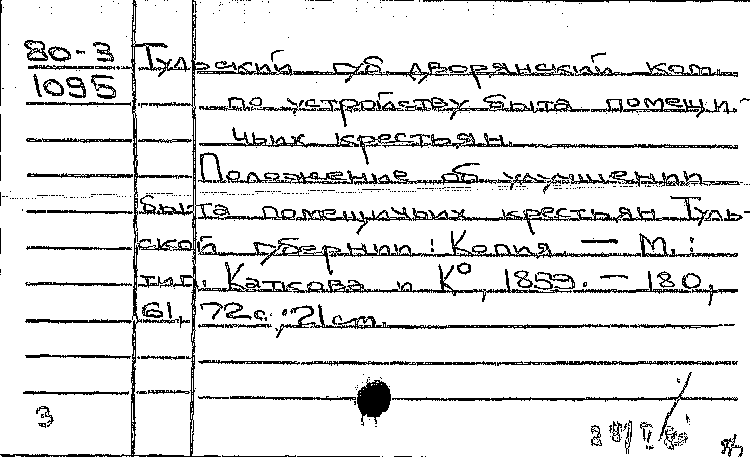 80-3 Тульский губ дворянский ком.
1095 по устройству быта помещи-
чьих крестьян.
Положение об улучшении
быта помещичьих крестьян Туль-
ской губернии: Копия. — М.:
тип. Каткова и К°, 1859. — 180,
61, 72 с.; 21 см.
3